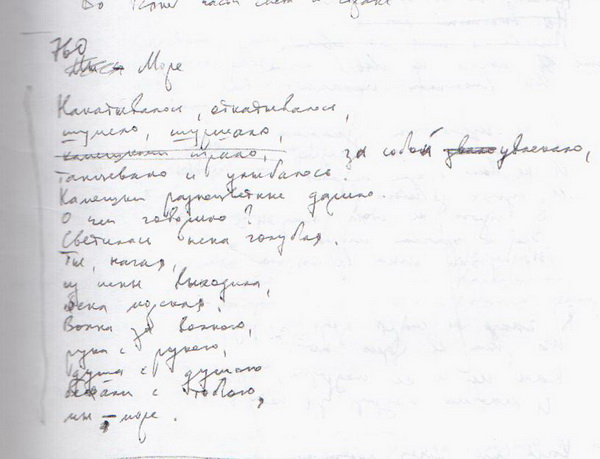 760
Море
Накатывалось, откатывалось,
шумело, шуршало,
камешками играло, за собой звало увлекало,
танцевало и улыбалось.
Камешки разноцветные дарило.
О чем говорило?
Светилась пена голубая.
Ты, нагая,
из пены выходила,
пена морская.
Волна за волною,
рука с рукою,
душа с душою
с тобою,
мы – море.